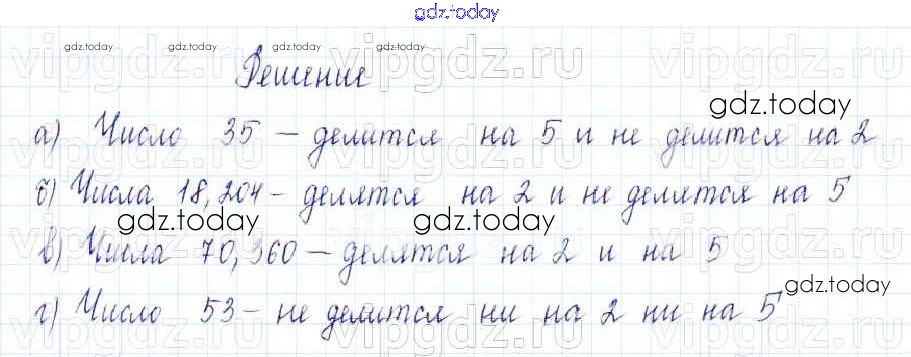 gdz.today
Решение
а) Число 35 – делится на 5 и не делится на 2
б) Числа 18, 204 – делятся на 2 и не делятся на 5
в) Числа 70, 360 – делятся на 2 и на 5
г) Число 53 – не делится ни на 2 ни на 5
gdz.today gdz.today gdz.today gdz.today
gdz.today
gdz.today gdz.today
gdz.today
vipgdz.ru vipgdz.ru vipgdz.ru
vipgdz.ru vipgdz.ru vipgdz.ru
vipgdz.ru vipgdz.ru vipgdz.ru
vipgdz.ru vipgdz.ru vipgdz.ru